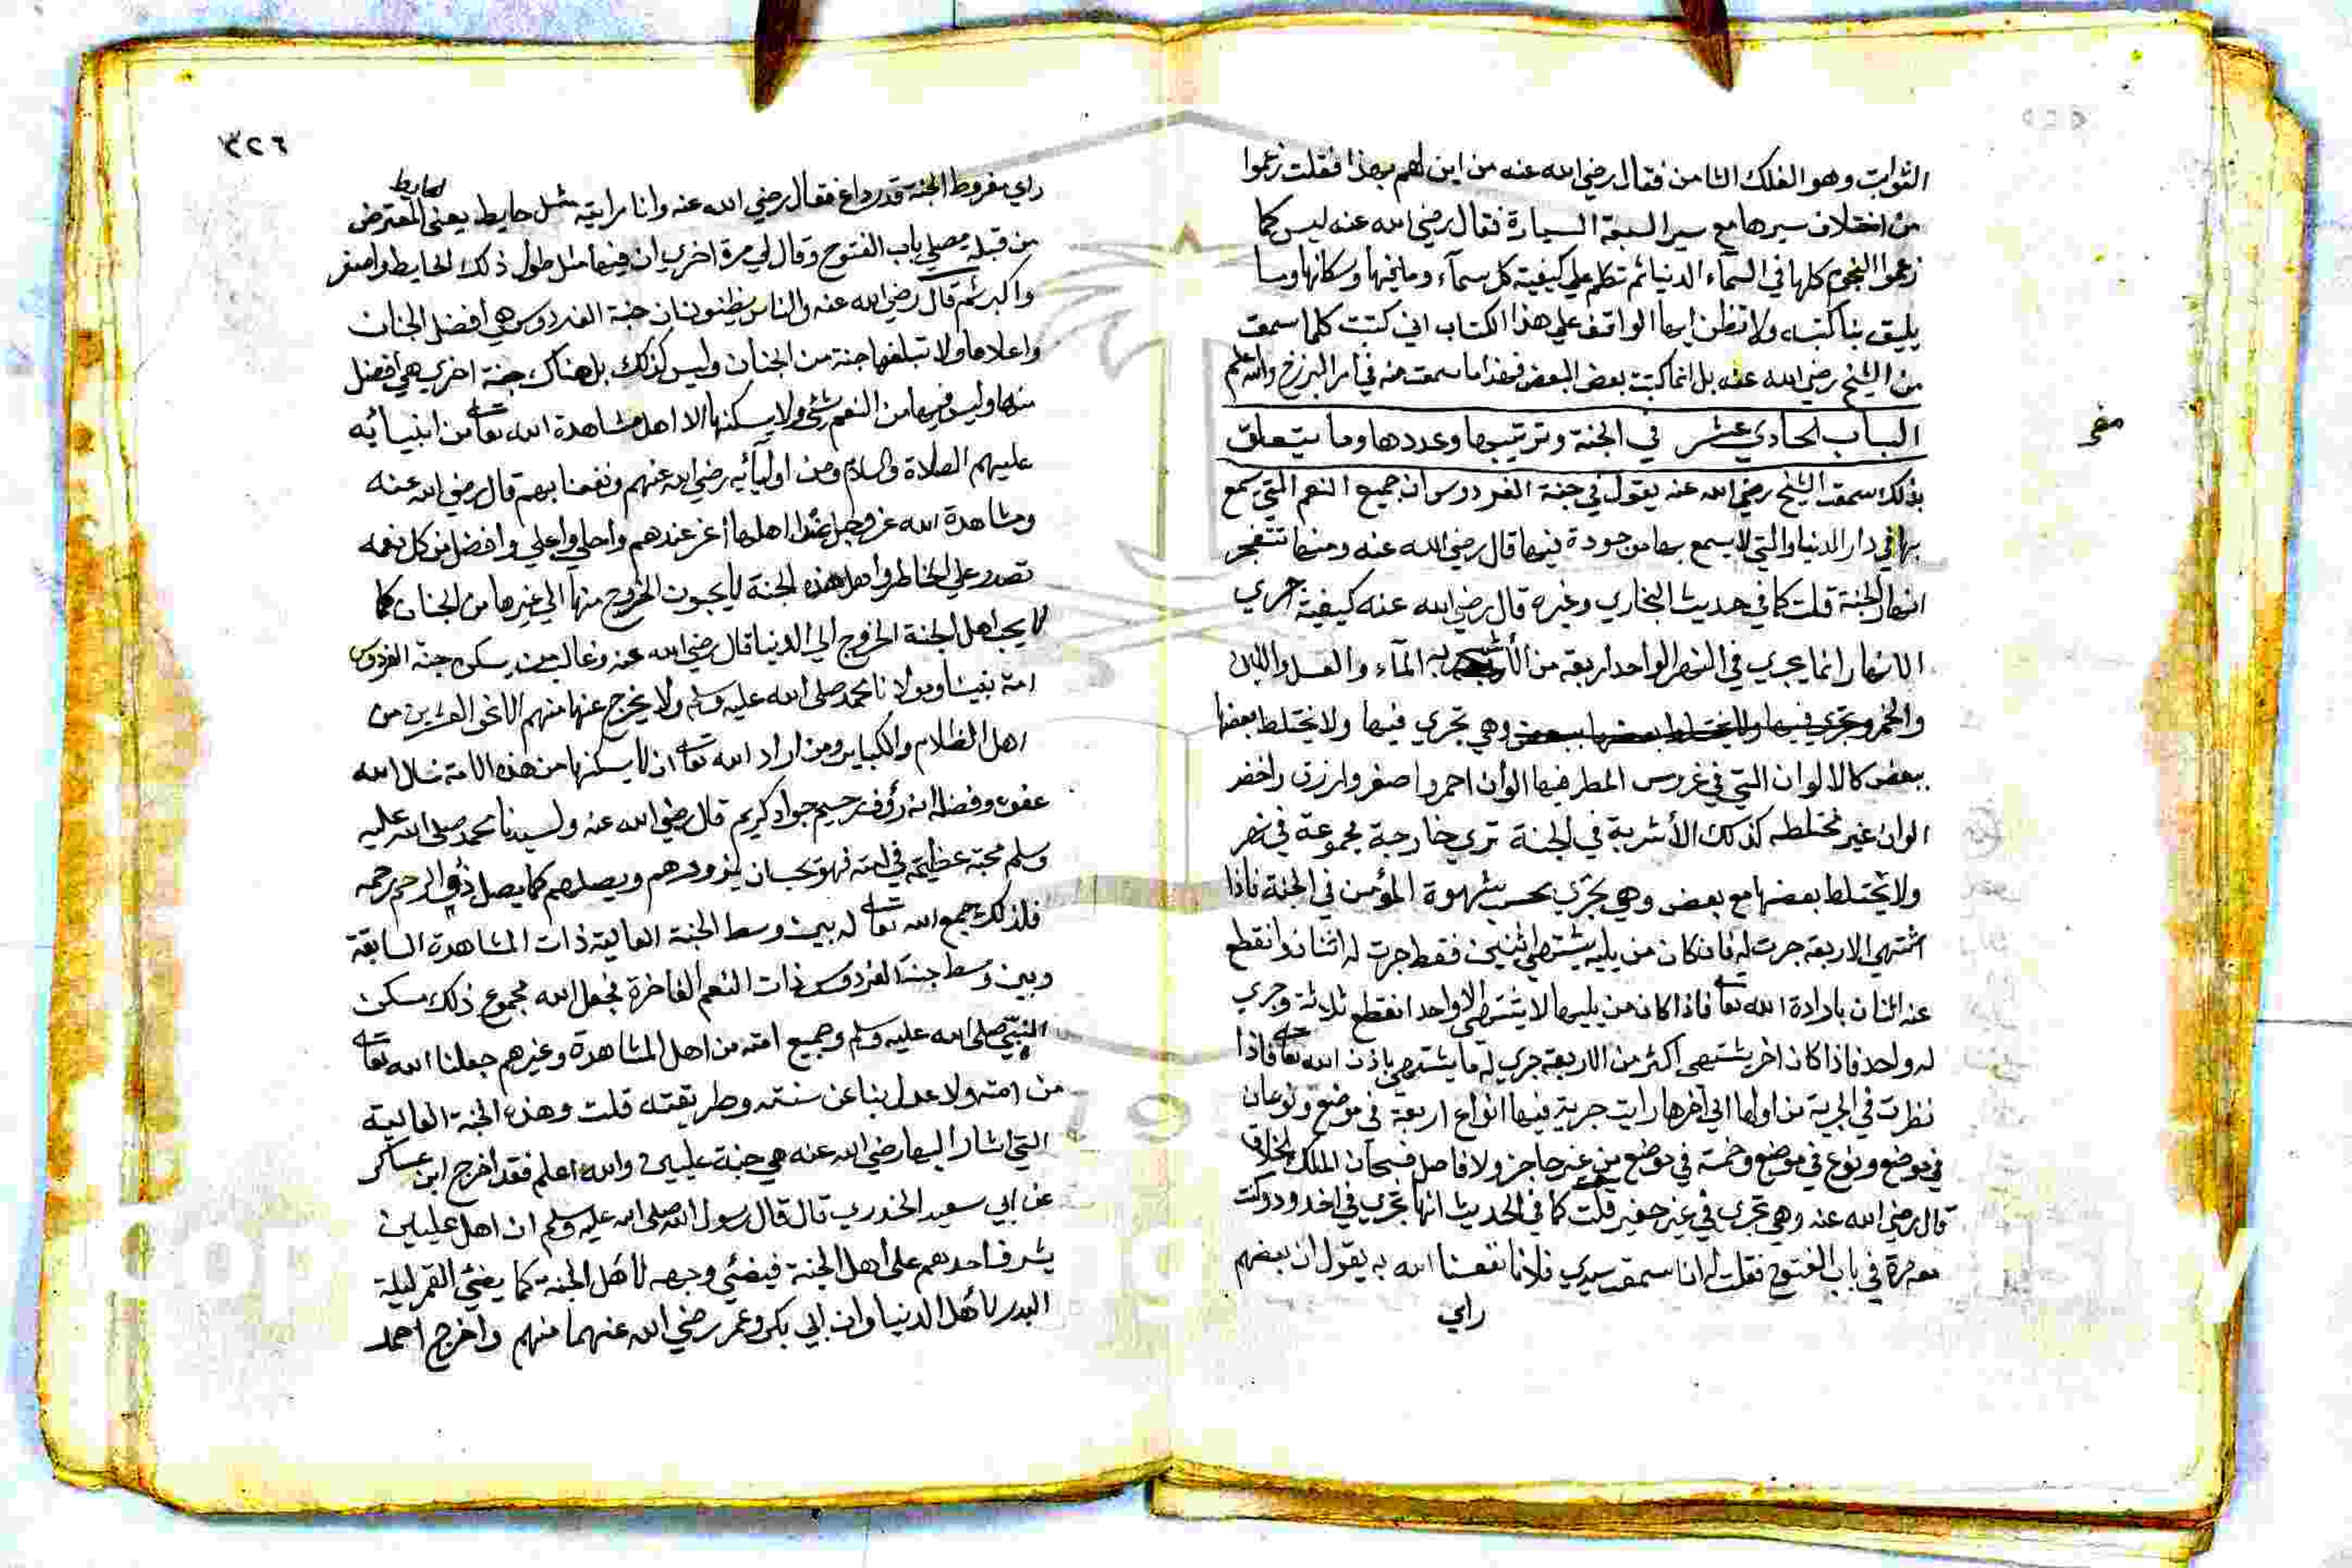 الثوابت وهو الفلك الثامن فقال رضي الله عنه من اين لهم بهذا فقلت زعموا
من اختلاف سيرها مع سير السبعة السيارة فقال رضي الله عنه ليس كما
زعموا النجوم كلها في السماء الدنيا ثم تكلم علي كيفية كل سماء وما فيها وسكانها وما
يليق بنا كتبه ولا تظن ايها الواقف علي هذا الكتاب اني كتبت كلما سمعت
من الشيخ رضي الله عنه بل انما كتبت بعض البعض فهذا ما سمعت منه في امر البرزخ والله اعلم
الباب الحادي عشر في الجنة وترتيبها وعددها وما يتعلق
بذلك سمعت الشيخ رضي الله عنه يقول في جنة الفردوس ان جميع النعم التي يسمع
بها في دار الدنيا والتي لا يسمع بها موجودة فيها قال رضي الله عنه ومنها تتفجر
انهار الجنة قلت كما في حديث البخاري وغيره قال رضي الله عنه كيفية جري
الانهار انما يجري في النهر الواحد اربعة من الأشربه الماء والعسل واللبن
والخمر وتجري فيها ولا يختلط بعضها ببعض وهي تجري فيها ولا يختلط بعضها
ببعض كالالوان التي في عروس المطر فيها الوان احمر واصفر وازرق واخضر
الوان غير مختلطه كذلك الأشربة في الجنة تري خارجة مجموعة في نهر
ولا يختلط بعضها مع بعض وهي تجري بحسب شهوة المؤمن في الجنة فاذا
اشتهي الاربعة جرت له فان كان من يليه يشتهي اثنين فقط جرت له اثنان وانقطع
عنه اثنان بارادة الله تعالى فاذا كان من يليها لا يشتهي الا واحدا انقطع ثلاثة وجري
له واحد فاذا كان اخر يشتهي اكثر من الاربعة جري له ما يشتهي باذن الله تعالى فاذا
نظرت في الجرية من اولها الي آخرها رايت جرية فيها انواع اربعة في موضع ونوعان
في موضع ونوع في موضع وخمسة في موضع من غير حاجز ولا فاصل فسبحان الملك الخلاق
قال رضي الله عنه وهي تجري في غير حفير قلت كما في الحديث انها تجري في اخدود وكنت
معه مرة في باب الفتوح فقلت له انا سمعت سيدي فلانا نفعنا الله به يقول ان بعضهم
راي
٣٢٦
راي مفروط الجنة قدر داغ فقال رضي الله عنه وانا رايته مثل حايط يعني المعترض
الحايط
من قبلة مصلي باب الفتوح وقال لي مرة اخري ان فيها مثل طول ذلك الحايط واصغر
واكبر ثم قال رضي الله عنه والناس يظنون ان جنة الفردوس هي افضل الجنان
واعلاها ولا تبلغها جنة من الجنان وليس كذلك بل هناك جنة اخري هي افضل
منها وليس فيها من النعم شئ ولا يسكنها الا اهل مشاهدة الله تعالى من انبيائه
عليهم الصلاة والسلام ومن اوليائه رضي الله عنهم ونفعنا بهم قال رضي الله عنه
ومشاهدة الله عز وجل عند اهلها اعز عندهم واحلي واعلي وافضل من كل نعمه
تصدر علي الخاطر واهل هذه الجنة لا يحبون الخروج منها الي غيرها من الجنان كما
لا يحب اهل الجنة الخروج الي الدنيا قال رضي الله عنه وغالب من يسكن جنة الفردوس
امة نبينا ومولانا محمد صلى الله عليه وسلم ولا يخرج عنها منهم الا نحو العشرين من
اهل الظلام والكباير ومن اراد الله تعالى ان لا يسكنها من هذه الامة نسال الله
عفوه وفضله انه رؤف رحيم جواد كريم قال رضي الله عنه ولسيدنا محمد صلى الله عليه
وسلم محبة عظيمة في امته فهو يحب ان يزورهم ويصلهم كما يصل ذو الرحم رحمه
فلذلك جمع الله تعالى له بين وسط الجنة العالية ذات المشاهدة السابقة
وبين وسط جنة الفردوس ذات النعم الفاخرة فجعل الله مجموع ذلك مسكن
النبي صلى الله عليه وسلم وجميع امته من اهل المشاهدة وغيرهم جعلنا الله تعالى
من امته ولا عدل بنا عن سنته وطريقته قلت وهذه الجنة العالية
التي اشار اليها رضي الله عنه هي جنة عليين والله اعلم فقد اخرج ابن عساكر
عن ابي سعيد الخدري قال قال رسول الله صلى الله عليه وسلم ان اهل عليين
يشرف احدهم على اهل الجنة فيضئ وجهه لأهل الجنة كما يضئ القمر ليلة
البدر لأهل الدنيا وان ابي بكر وعمر رضي الله عنهما منهم واخرج احمد